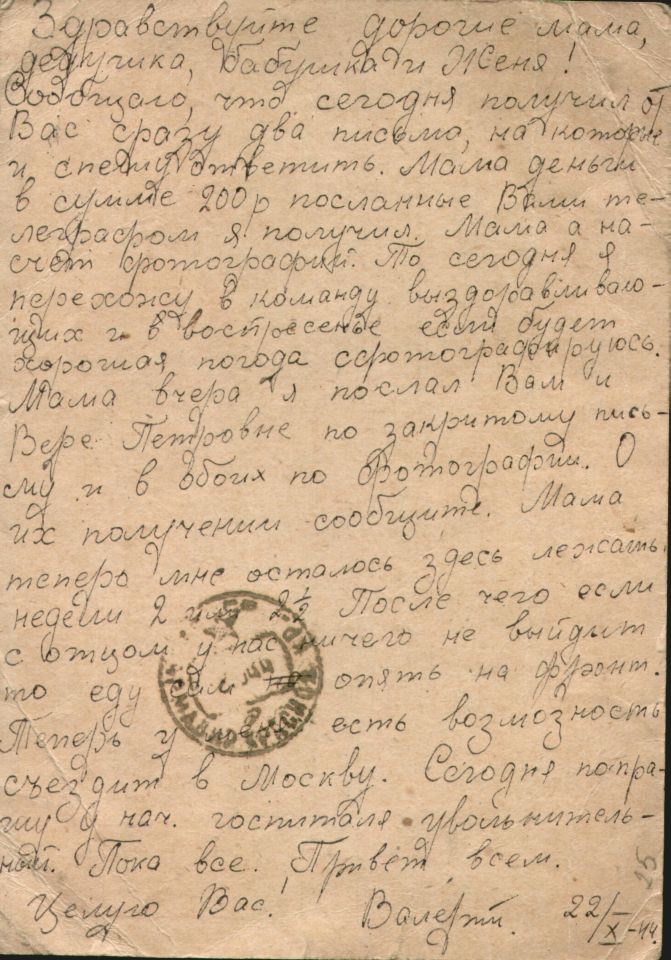 Здравствуйте дорогие мама,
дедушка, бабушка и Женя!
Сообщаю, что сегодня получил от
Вас сразу два письма, на которые
и спешу ответить. Мама деньги
в сумме 200р посланные Вами те-
леграфом я получил. Мама а на-
счёт фотографий. То сегодня я
перехожу в команду выздоравливаю-
щих и в востресенье если будет
хорошая погода сфотографируюсь.
Мама вчера я послал Вам и
Вере Петровне по закритому пись-
му и в обоих по фотографии. О
их получении сообщите. Мама
теперь мне осталось здесь лежать
недели 2 или 2½ После чего если
с отцом у нас ничего не выйдит
то еду опять на фронт.
Теперь у меня есть возможность
съездит в Москву. Сегодня попра-
шу у нач. госпиталя увольнитель-
ный. Пока все. Привет всем.
Целую Вас! Валерий. 22/X-44.
15